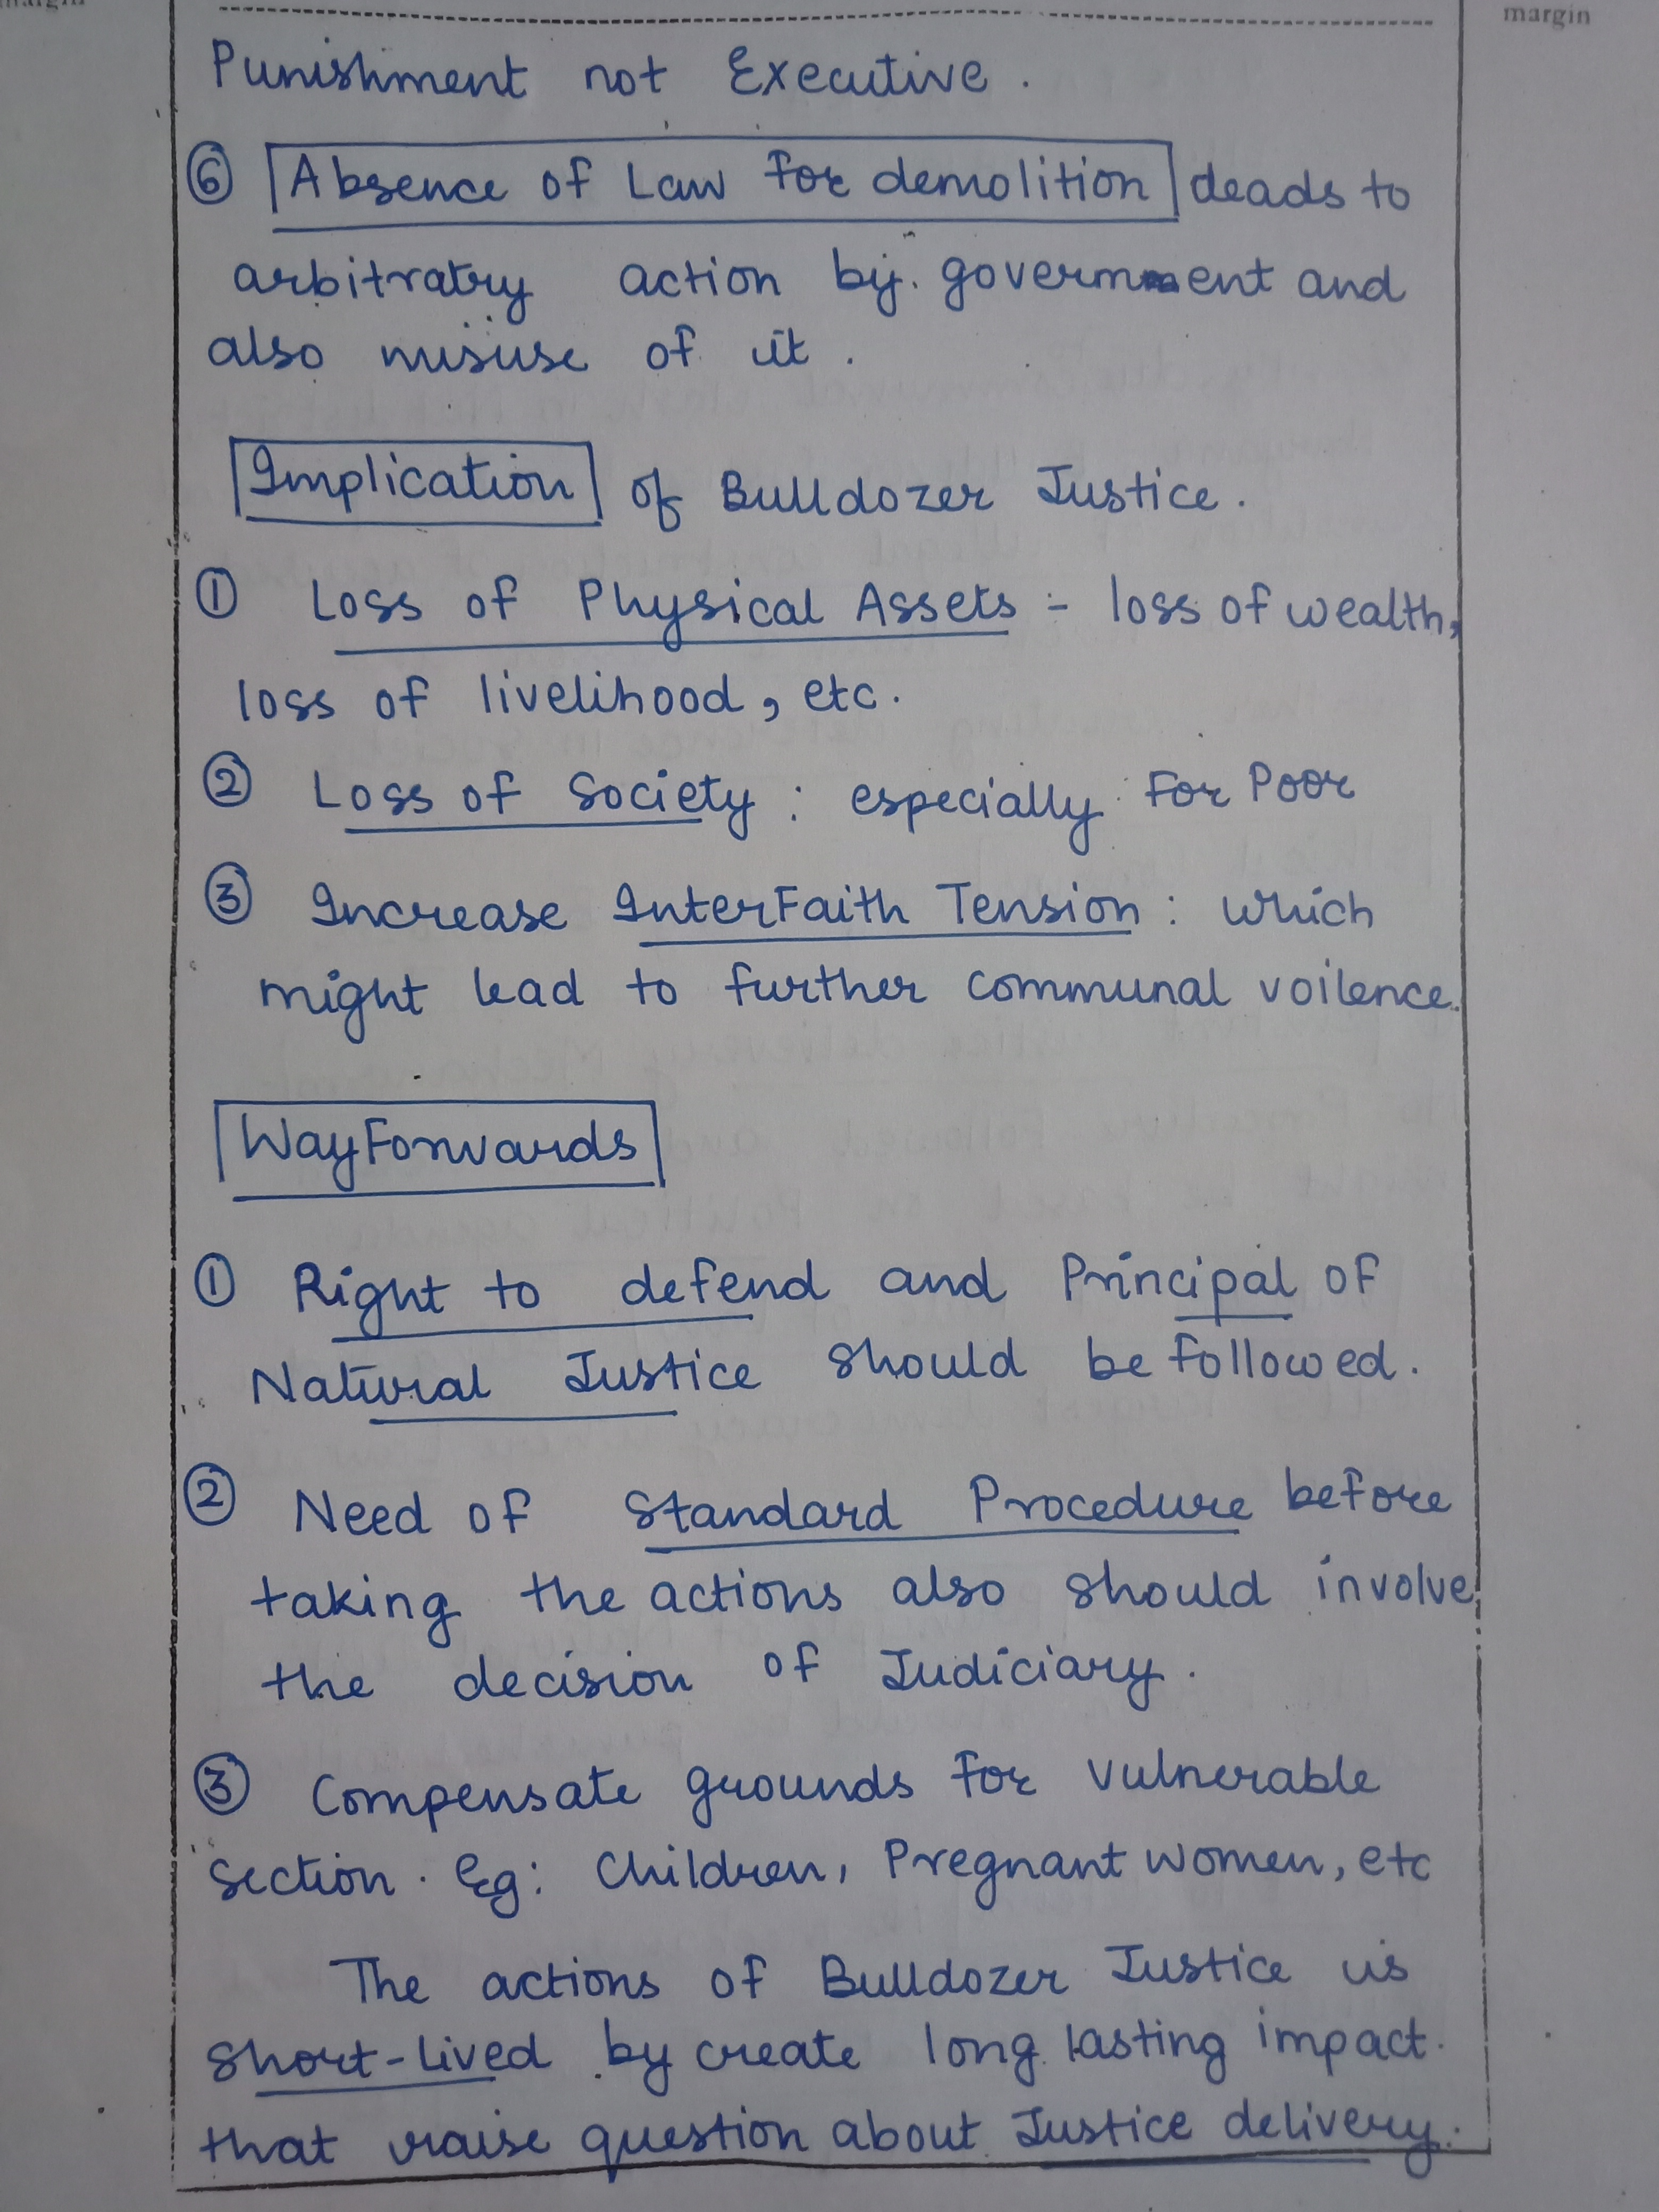 margin
margin
Punishment not Executive.
⑥ Absence of Law for demolition deads to
arbitratry action by government and
also misuse of it.
Implication of Bulldozer Justice.
① Loss of Physical Assets :- loss of wealth,
loss of livelihood, etc.
② Loss of Society : especially for Poor
③ Increase InterFaith Tension : which
might lead to further communal voilence.
Way Forwards
① Right to defend and Principal of
Natural Justice should be followed.
② Need of Standard Procedure before
taking the actions also should involve
the decision of Judiciary.
③ Compensate grounds for vulnerable
section. Eg: Children, Pregnant women, etc
The actions of Bulldozer Justice is
short-lived by create long lasting impact.
that raise question about Justice delivery.